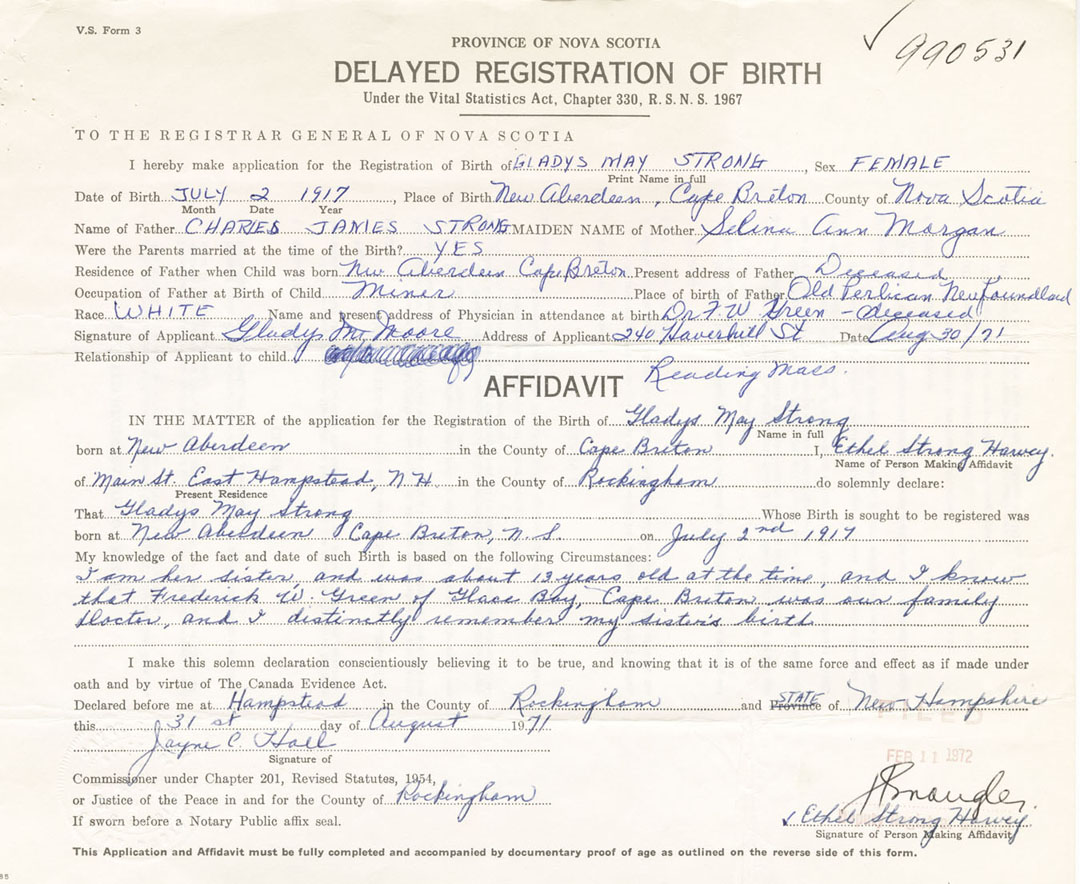 V.S. Form 3
990531
PROVINCE OF NOVA SCOTIA
DELAYED REGISTRATION OF BIRTH
Under the Vital Statistics Act, Chapter 330, R. S. N. S. 1967
TO THE REGISTRAR GENERAL OF NOVA SCOTIA
I hereby make application for the Registration of Birth of GLADYS MAY STRONG, Sex FEMALE
Print Name in full
Date of Birth JULY 2 1917, Place of Birth New Aberdeen, Cape Breton County of Nova Scotia
Month Date Year
Name of Father CHARLES JAMES STRONG MAIDEN NAME of Mother Selina Ann Morgan
Were the Parents married at the time of the Birth? YES
Residence of Father when Child was born New Aberdeen Cape Breton Present address of Father Deceased
Occupation of Father at Birth of Child Miner Place of birth of Father Old Perlican Newfoundland
Race WHITE Name and present address of Physician in attendance at birth Dr F. W Green - deceased
Signature of Applicant Gladys M. Moore Address of Applicant 240 Haverhill St Date Aug 30/71
Relationship of Applicant to child
Reading Mass.
AFFIDAVIT
IN THE MATTER of the application for the Registration of the Birth of Gladys May Strong
Name in full
born at New Aberdeen in the County of Cape Breton I, Ethel Strong Harvey.
Name of Person Making Affidavit
of Main St. East Hampstead, N.H. in the County of Rockingham do solemnly declare:
Present Residence
That Gladys May Strong Whose Birth is sought to be registered was
born at New Aberdeen Cape Breton, N.S. on July 2nd 1917
My knowledge of the fact and date of such Birth is based on the following Circumstances:
I am her sister, and was about 13 years old at the time, and I know
that Frederick W. Green of Glace Bay, Cape Breton was our family
doctor, and I distinctly remember my sister's birth
I make this solemn declaration conscientiously believing it to be true, and knowing that it is of the same force and effect as if made under
oath and by virtue of The Canada Evidence Act.
Declared before me at Hampstead in the County of Rockingham and Province STATE of New Hampshire
this 31st day of August 1971
FILED
Jayne C. Hall
Signature of
FEB 11 1972
Commissioner under Chapter 201, Revised Statutes, 1954,
or Justice of the Peace in and for the County of Rockingham
If sworn before a Notary Public affix seal.
Ethel Strong Harvey
Signature of Person Making Affidavit
This Application and Affidavit must be fully completed and accompanied by documentary proof of age as outlined on the reverse side of this form.